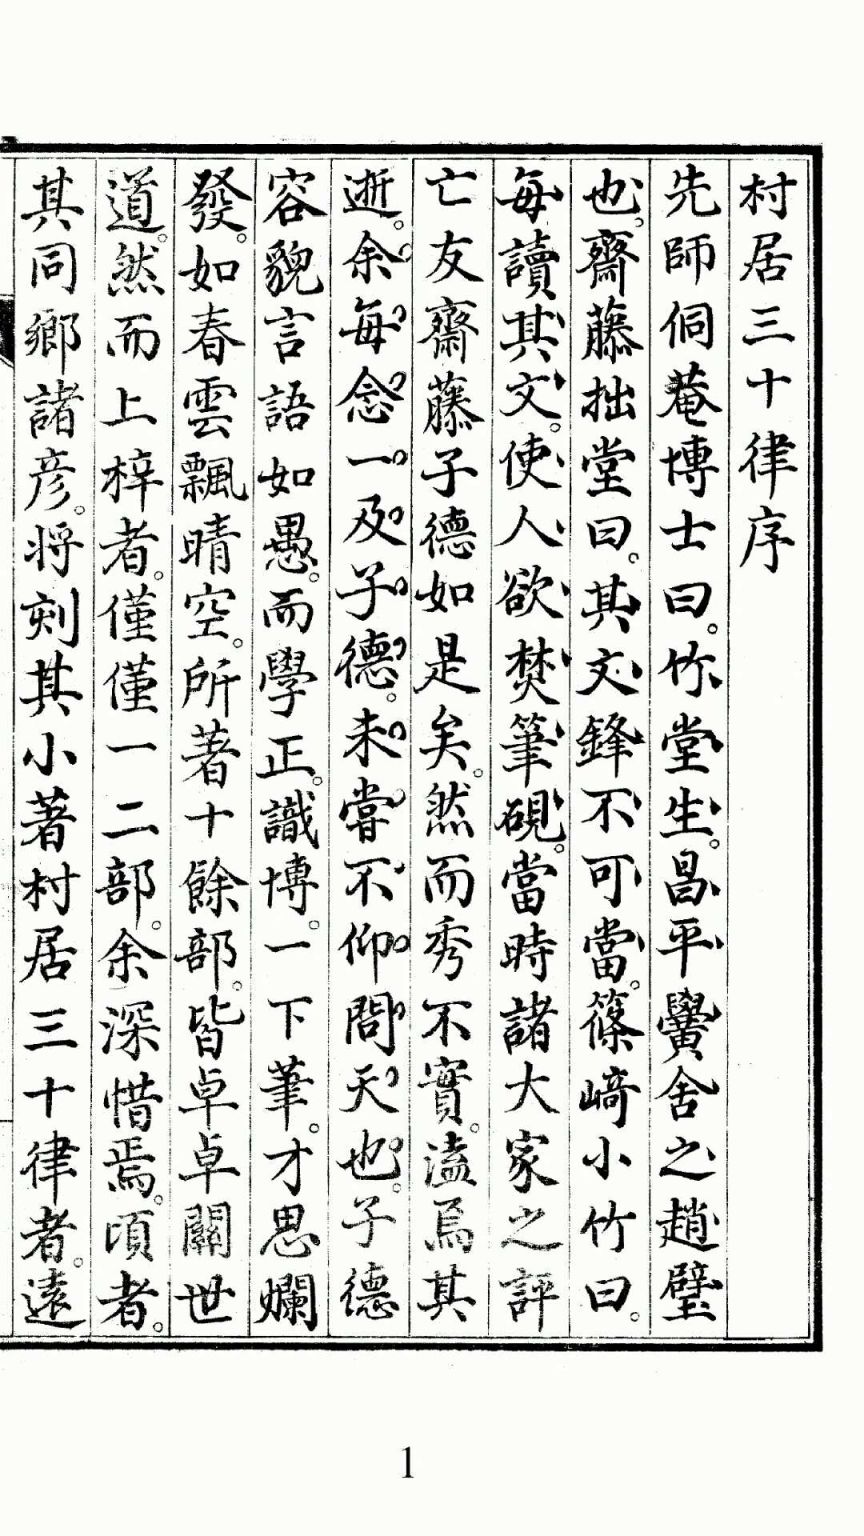 村居三十律序
先師侗菴博士曰。竹堂生。昌平黌舍之趙璧
也。齋藤拙堂曰。其文鋒不可當。篠﨑小竹曰。
每讀其文。使人欲焚筆硯。當時諸大家之評
亡友齋藤子德如是矣。然而秀不實。溘焉其
逝。余每念一及子德。未嘗不仰問天也。子德
容貌言語如愚。而學正。識博。一下筆。才思爛
發。如春雲飄晴空。所著十餘部。皆卓卓關世
道。然而上梓者。僅僅一二部。余深惜焉。頃者。
其同鄉諸彦。将刻其小著村居三十律者。遠
1